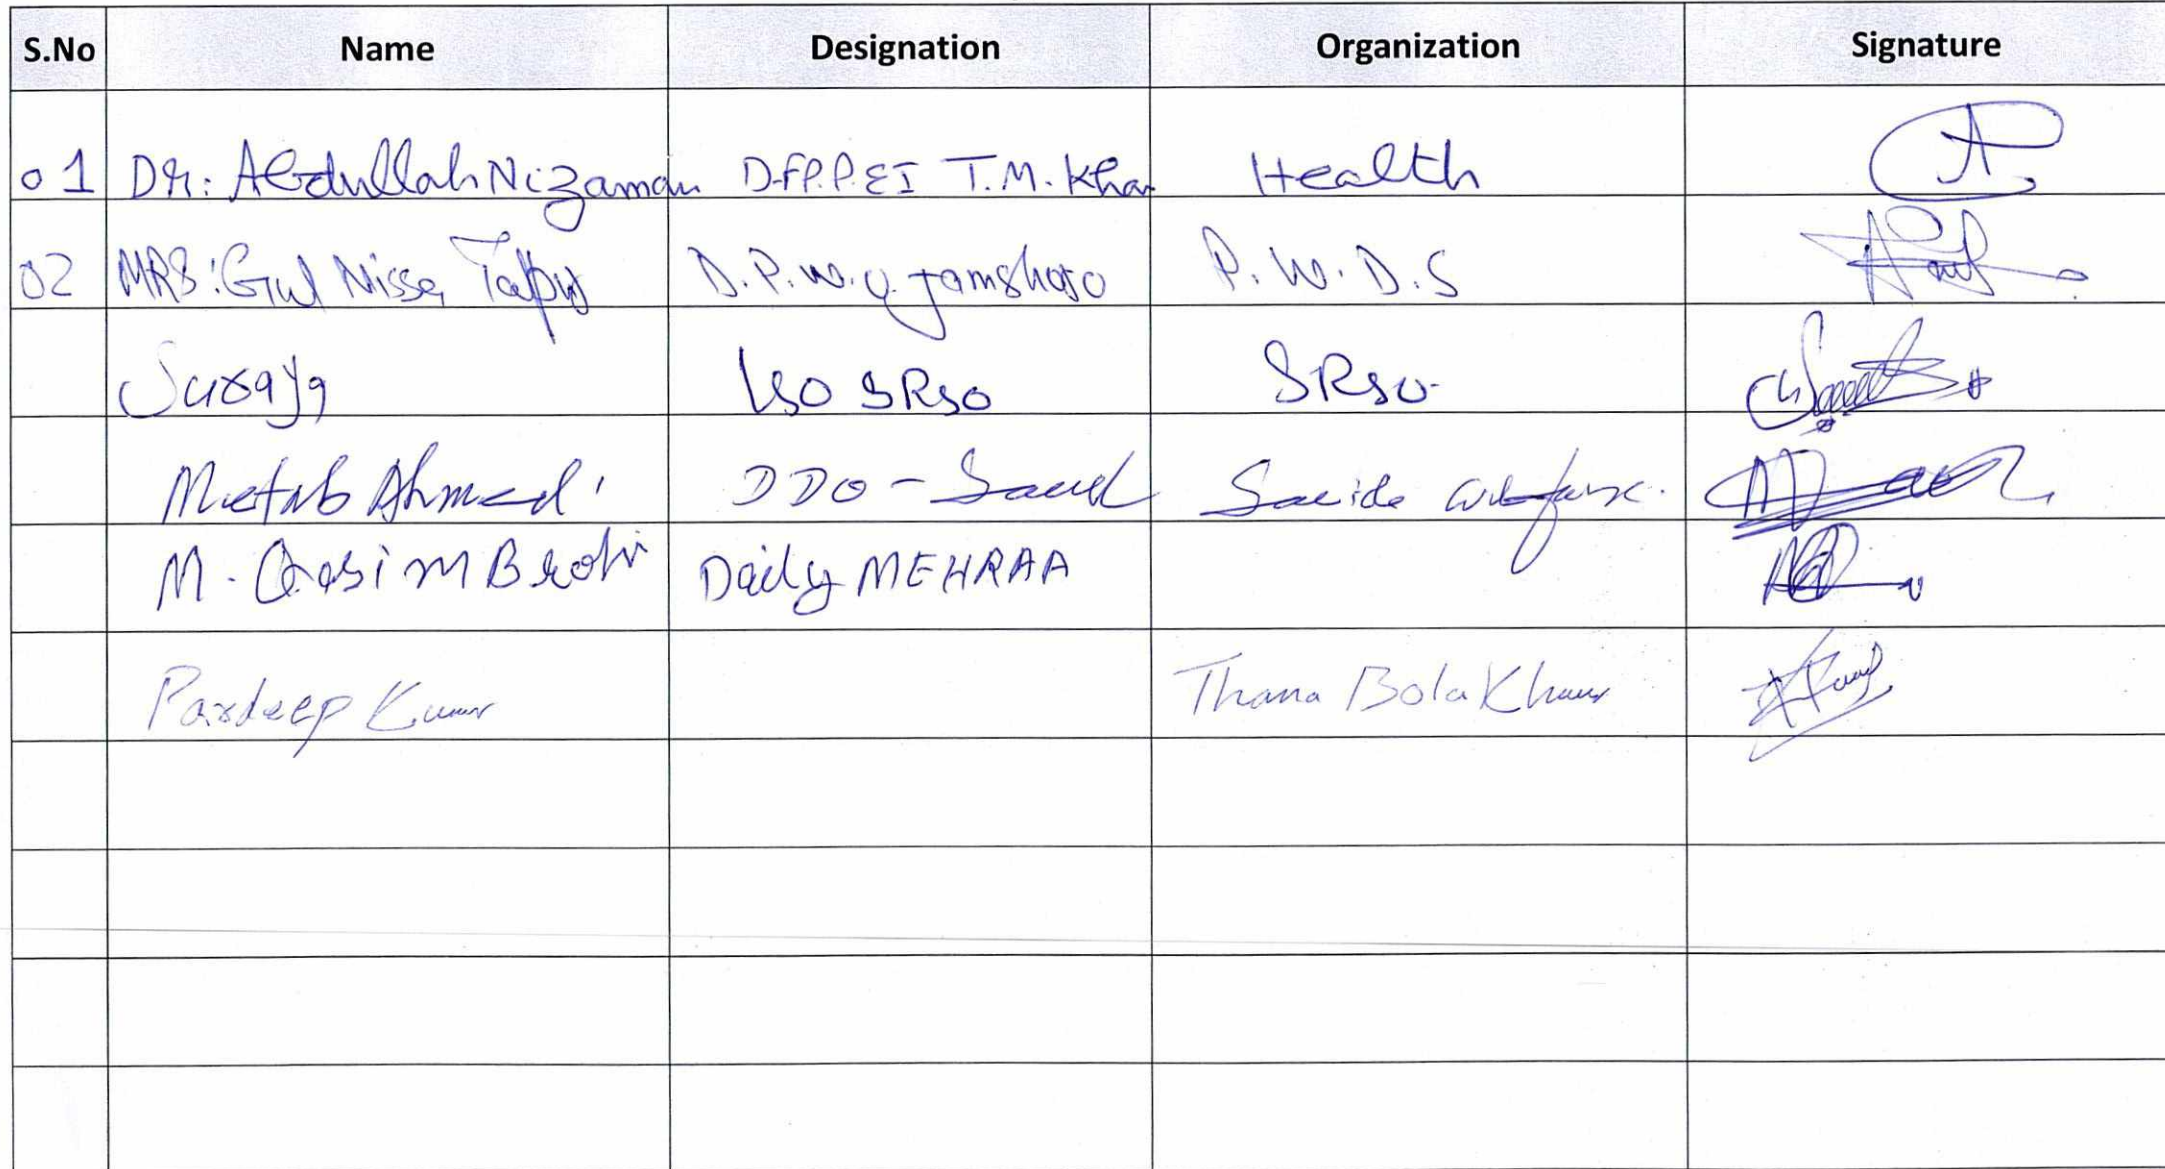 S.No Name Designation Organization Signature
01 DR: Abdullah Nizamani D-FP.P.EI T.M. Khan Health
02 MRS: Gul Nissa Talpur D.P.W.O. Jamshoro P.W.D.S
Suraya SRSO SRSO
Ahmed DDO - Welfare
M. Qasim Brohi Daily MEHRAA
Pardeep Kumar Thana Bola Khan